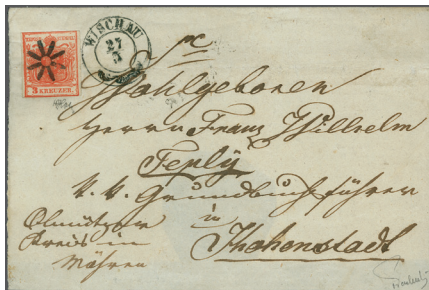 3 KREUZER
WISCHAU
27
3
Wohlgeboren
Herrn Franz Wilhelm
Teplÿ
k. k. Grundbuchsführer
in
Hohenstadt
Olmützer
Kreis in
Mähren